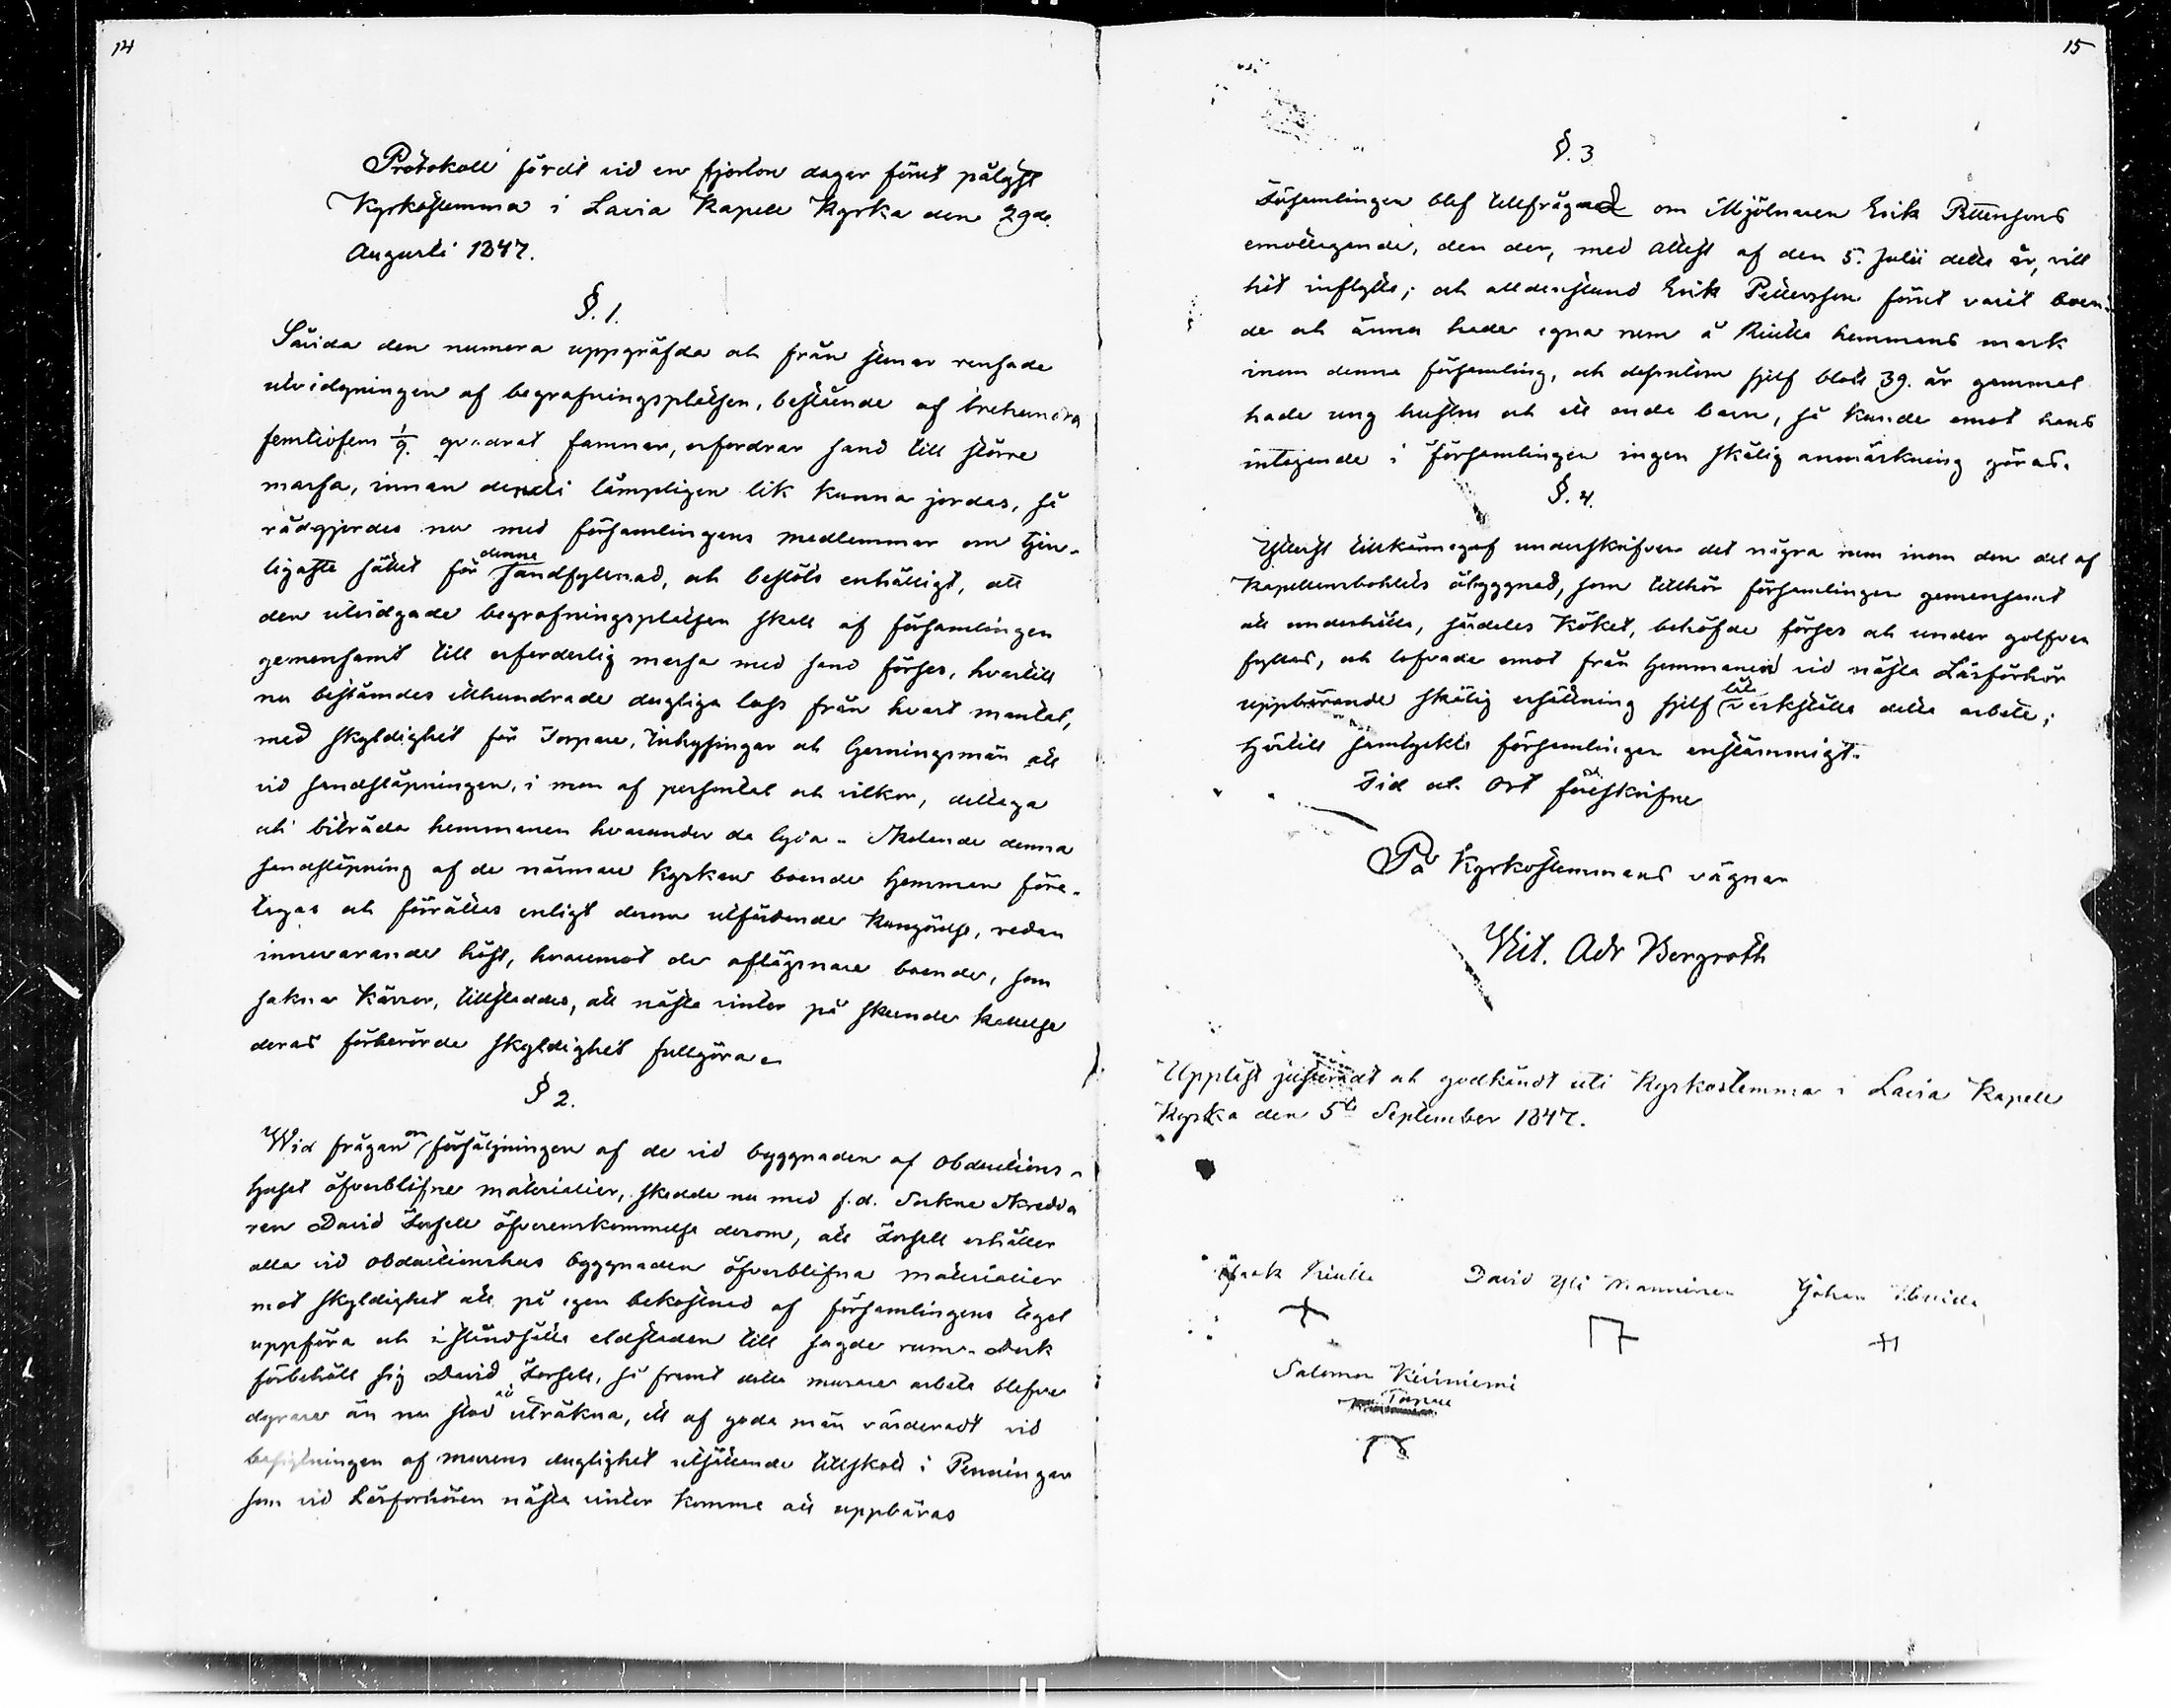 14
Protokoll fördt vid en fjorton dagar förut pålyst
Kyrkostemma i Lavia Kapell Kyrka den 29de
Augusti 1847.
§. 1.
Såvida den numera uppgräfda och från stenar rensade
utvidgningen af begrafningsplatsen, bestående af trehundra
femtiofem 1/9. quadrat famnar, erfordrar sand till större
massa, innan deruti lämpligen lik kunna jordas, så
rådgjordes nu med församlingens medlemmar om tjen-
ligaste sättet för denne sandfyllnad, och beslöts enhälligt, att
den utvidgade begrafningsplatsen skall af församlingen
gemensamt till erforderlig massa med sand förses, hvartill
nu bestämdes etthundrade dugliga lass från hvart mantal,
med skyldighet för Torpare, Inhysingar och Gerningsmän att
vid sandsläpningen, i mon af persontal och vilkor, deltaga
och biträda hemmanen hvarunder de lyda. Skolande denna
sandsläpning af de närmare Kyrkan boende Hemman före-
tagas och förrättas enligt derom utfärdande Kungörelse, redan
innevarande höst, hvaremot de aflägsnare boende, som
sakna Kärror, tillstaddes, att nästa vinter på skeende kallelse
deras förberörde skyldighet fullgöra.
§ 2.
Wid frågan om försäljningen af de vid byggnaden af Obductions-
huset öfverblifne materialier, skedde nu med f.d. Sockne Skredda
ren David Forsell öfverenskommelse derom, att Forsell erhåller
alla vid obductionshus byggnaden öfverblifna materialier
mot skyldighet att på egen bekostnad af församlingens tegel
uppföra och i ståndsätta eldstaden till sagde rum. Dock
förbehöll sig David Forsell, så framt detta murare arbete blefve
dyrare än nu stod att uträkna, ett af gode män värderadt vid
besigtningen af murens duglighet utsättande tillskott i Penningar
som vid Läsförhören nästa vinter komme att uppbäras
15
§. 3
Församlingen blef tillfrågad om Mjölnaren Erik Pettersons
emottagande, den der, med attest af den 5. Julii detta år, vill
hit inflytta; och alldenstund Erik Pettersson förut varit boen-
de och ännu hade egna rum å Riutta hemmans mark
inom denna församling, och dessutom sjelf blott 39. år gammal
hade ung hustru och ett enda barn, så kunde emot hans
intagande i församlingen ingen skälig anmärkning göras.
§. 4.
Ytterst tillkännagaf underskrifven det några rum inom den del af
Kapellansbohlets åbyggnad, som tillhör församlingen gemensamt
att underhålla, särdeles Köket, behöfde förses och under golfven
fyllas, och lofvade emot från Hemmanen vid nästa Läsförhör
uppbärande skälig ersättning sjelf låta verkställa detta arbete;
hvartill samtyckte församlingen enstämmigt.
Tid och Ort förskrifne
På Kyrkostemmans vägnar
Wit. Adr Bergroth
Uppläst justeradt och godkändt uti Kyrkostemma i Lavia Kapell
Kyrka den 5te September 1847.
Isaak Riutta David Yli Manninen Johan
Salomon Kiviniemi